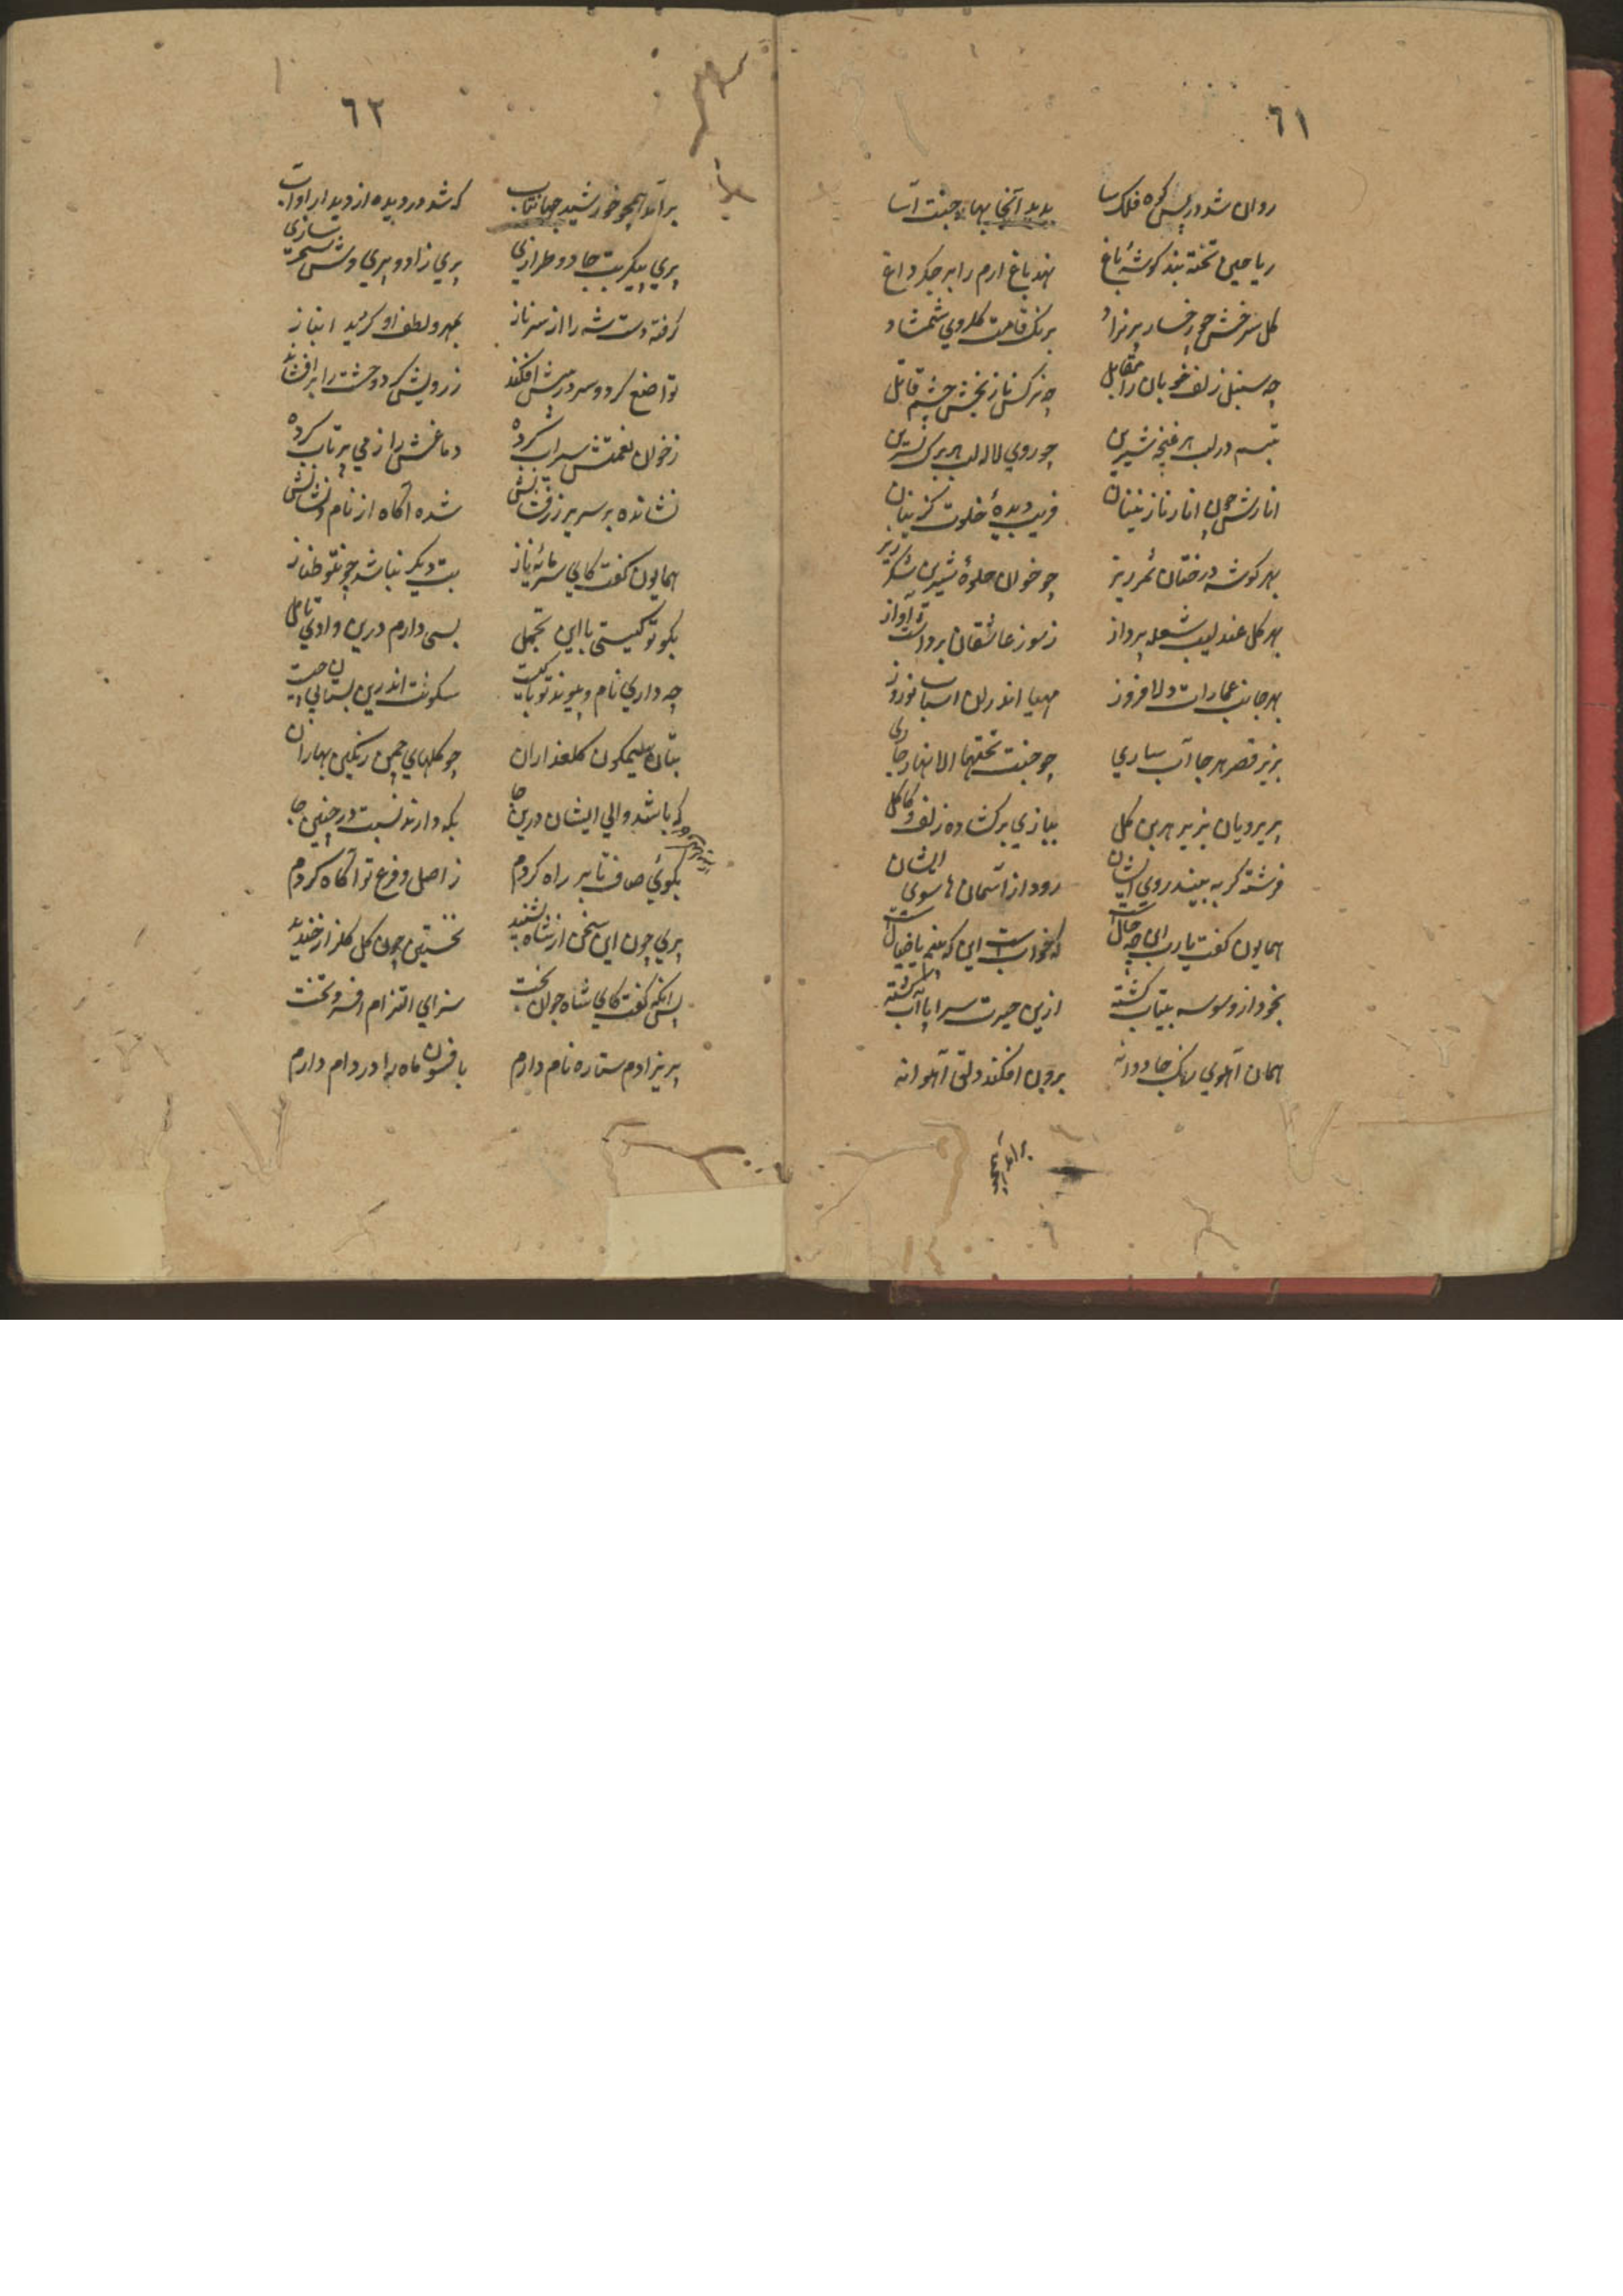 ٦١
روان شد در پس کوه فلک سا بدید آنجا بهار جنت آسا
ریاحین تخته بند کوشهٔ باغ نهد باغ ارم را بر جکر داغ
کل سرخش چو رخسار پریزاد برنک قامت کلروی شمشاد
چه سنبل زلف خوبان را مقابل چه نرکس ناز بخش چشم قاتل
تبسم در لب هر غنچه شیرین چو روی لاله لب هر برک نسرین
انارش چون انار نازنینان فریب دیدهٔ خلوت کزینان
بهر کوشه درختان ثمرریز چو خوان جلوهٔ شیرین شکرریز
بهر کل عندلیب شعله پرداز ز سوز عاشقان برداشته آواز
بهر جانب عمارات دلافروز مهیا اندران اسباب نوروز
بزیر قصر هر جا آب ساری چو جنت تحتها الانهار جاری
پریرویان بزیر هر بن کل ببازی برکشاده زلف و کاکل
فرشته کر به بیند روی ایشان رود از آسمان ها سوی ایشان
همایون کفت یارب این چه حالست که خوابست این که بینم یا خیالست
بخود از وسوسه بیتاب کشته ازین حیرت سراپا آب کشته
همان آهوی رنک جاودانه برون افکند دلق آهوانه
برامد همچو
٦٢
برامد همچو خورشید جهانتاب که شد در دیده از دیدار او آب
پری پیکر بت جادو طرازی پری زاد و پری وش سحر سازی
کرفته دست شه را از سر ناز بمهر و لطف او کردید انباز
تواضع کرد و سر در پیش افکند ز رویش کرد وحشت را برافشاند
ز خوان نعمتش سیراب کرده دماغش را ز می پرتاب کرده
نشانده بر سریر زرفشانش شده آکاه از نام و نشانش
همایون کفت کای سرمایهٔ ناز بت دیکر نباشد چونتو طناز
بکو تو کیستی با این تجمل بسی دارم درین وادی تامل
چه داری نام و پیوند تو با کیست سکونت اندرین بستان پی چیست
بتان سیمکون کلعذاران چو کلهای چمن رنکین بهاران
که باشد والی ایشان درین جا بکه دارند نسبت در چنین جا
بکوئی صاف تا بر راه کردم ز اصل و فرع تو آکاه کردم
پری چون این سخن از شاه بشنید نخستین چون کل کلزار خندید
پس آنکه کفت کای شاه جوان بخت سزای التزام افسر و تخت
پریزادم ستاره نام دارم بافسون ماه را در دام دارم